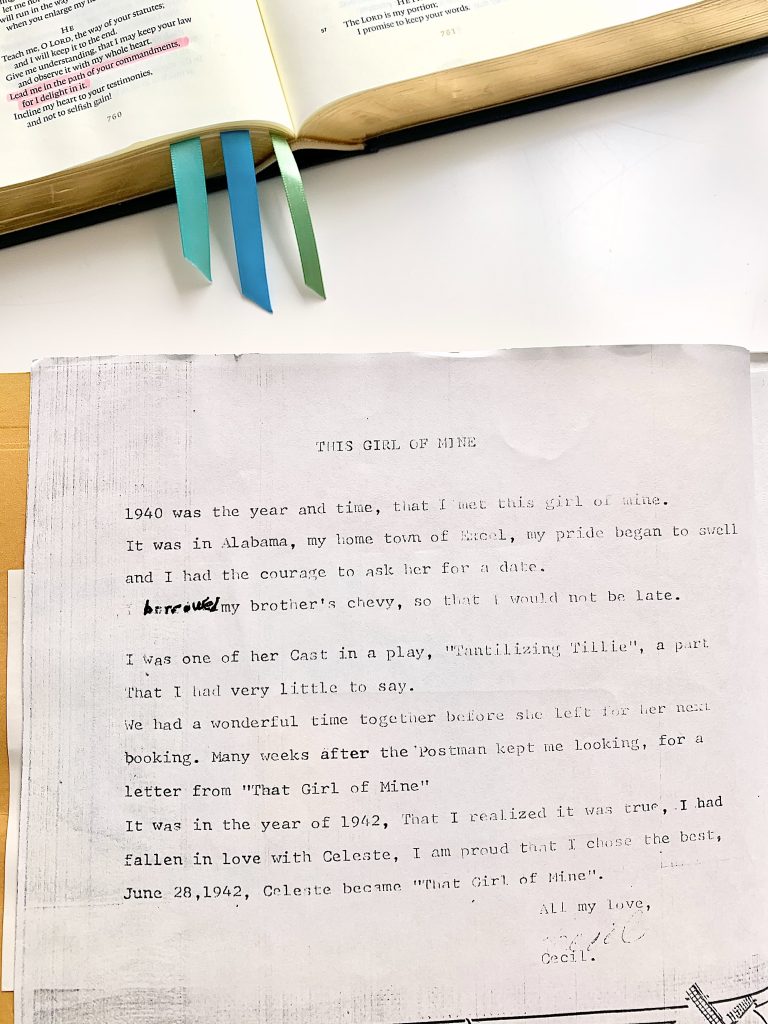 will run in the way
when you enlarge my
HE
Teach me, O LORD, the way of your statutes;
and I will keep it to the end.
Give me understanding, that I may keep your law
and observe it with my whole heart.
Lead me in the path of your commandments,
for I delight in it.
Incline my heart to your testimonies,
and not to selfish gain!
760
57 The LORD is my portion;
I promise to keep your words.
761
THIS GIRL OF MINE
1940 was the year and time, that I met this girl of mine.
It was in Alabama, my home town of Excel, my pride began to swell
and I had the courage to ask her for a date.
I borrowed my brother's chevy, so that I would not be late.
I was one of her Cast in a play, "Tantilizing Tillie", a part
That I had very little to say.
We had a wonderful time together before she left for her next
booking. Many weeks after the Postman kept me looking, for a
letter from "That Girl of Mine"
It was in the year of 1942, That I realized it was true, I had
fallen in love with Celeste, I am proud that I chose the best,
June 28,1942, Celeste became "That Girl of Mine".
All my love,
Cecil
Cecil.